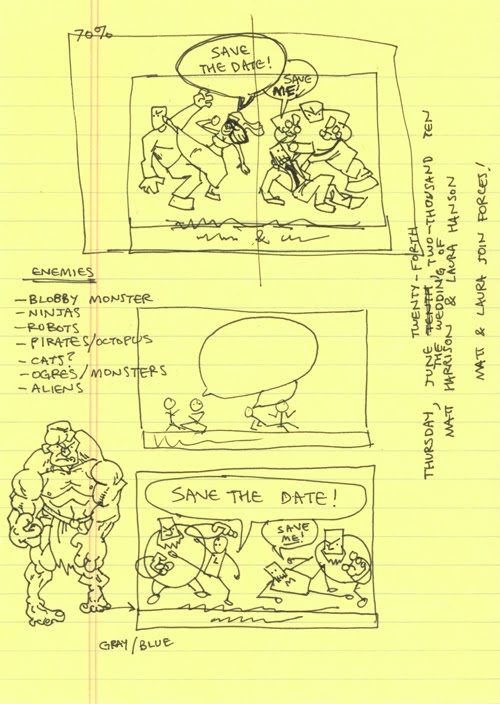 70%
SAVE
THE DATE!
SAVE
ME!
&
ENEMIES
- BLOBBY MONSTER
- NINJAS
- ROBOTS
- PIRATES/OCTOPUS
- CATS?
- OGRE'S/MONSTERS
- ALIENS
SAVE THE DATE!
SAVE
ME!
GRAY/BLUE
TWENTY-FORTH
THURSDAY, JUNE TENTH TWO-THOUSAND TEN
THE WEDDING OF
MATT HARRISON & LAURA HANSON
MATT & LAURA JOIN FORCES!